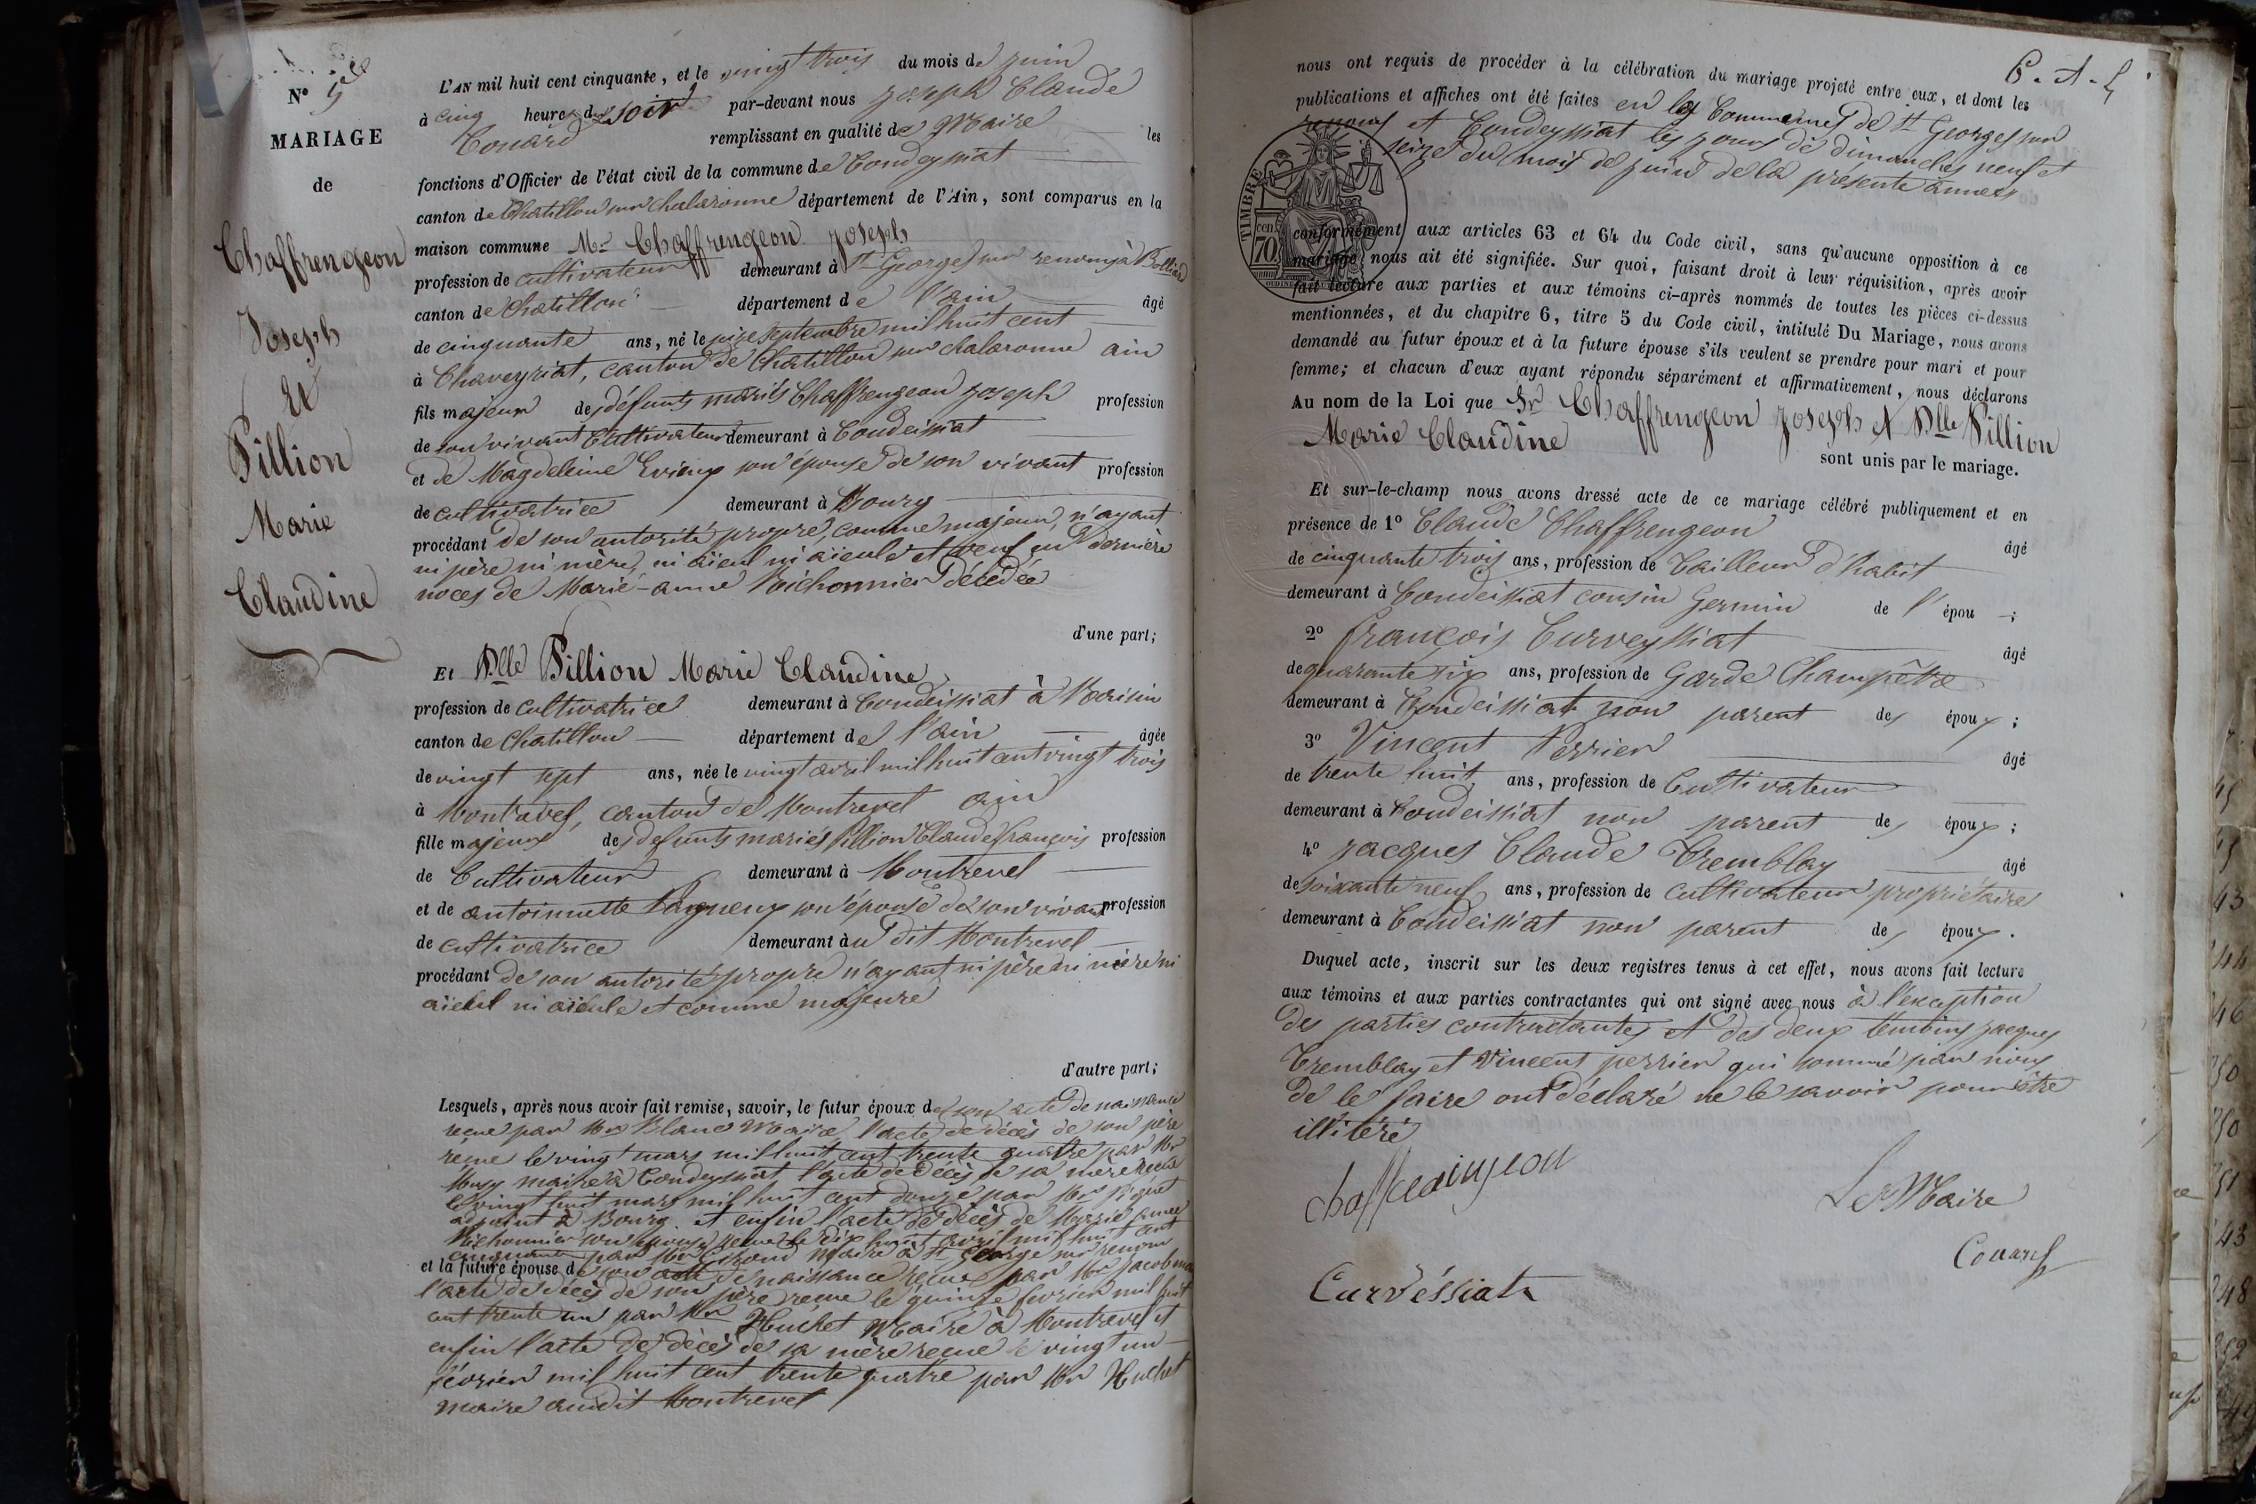 N° 5
MARIAGE
de
Chaffrengeon
Joseph
Et
Pillion
Marie
Claudine
L'AN mil huit cent cinquante, et le vingt trois du mois de juin
à cinq heures du soir par-devant nous joseph Claude
Couard remplissant en qualité de Maire les
fonctions d'Officier de l'état civil de la commune de Condeyssiat
canton de Chatillon sur chalaronne département de l'Ain, sont comparus en la
maison commune Mr Chaffrengeon joseph
profession de cultivateur demeurant à St Georges sur renom à
canton de Chatillon département de l'ain âgé
de cinquante ans, né le seize septembre mil huit cent
à Chaveyriat, canton de Chatillon sur chalaronne ain
fils majeur des défunts mariés Chaffrengeon joseph profession
de son vivant Cultivateur demeurant à Condeissiat
et de Magdeleine son épouse de son vivant profession
de cultivatrice demeurant à Bourg
procédant de son autorité propre, comme majeur, n'ayant
ni père ni mère, ni aïeul ni aïeule et veuf en dernière
noces de Marie-anne décédée
d'une part;
Et Dlle Pillion Marie Claudine
profession de cultivatrice demeurant à Condeissiat à
canton de Chatillon département de l'ain âgée
de vingt sept ans, née le vingt avril mil huit cent vingt trois
à Montrevel, canton de Montrevel ain
fille majeure des défunts mariés Pillion Claude François profession
de Cultivateur demeurant à Montrevel
et de antoinette son épouse de son vivant profession
de cultivatrice demeurant au dit Montrevel
procédant de son autorité propre n'ayant ni père ni mère ni
aïeul ni aïeule et comme majeure
d'autre part;
Lesquels, après nous avoir fait remise, savoir, le futur époux de son acte de naissance
reçue par Mr Blanc Maire l'acte de décès de son père
reçue le vingt mars mil huit cent trente quatre par Mr
maire à Condeyssiat l'acte de décès de sa mère reçue
le vingt huit mars mil huit cent douze par Mr
adjoint à Bourg. et enfin l'acte de décès de Marie anne
son épouse reçue le dix huit avril mil huit cent
cinquante par Mr Maire à St George sur renom
et la future épouse de son acte de naissance reçue par Mr Jacob
l'acte de décès de son père reçue le quinze fevrier mil huit
cent trente un par Mr Huchet Maire à Montrevel et
enfin l'acte de décès de sa mère reçue le vingt un
février mil huit cent trente quatre par Mr Huchet
maire audit Montrevel
nous ont requis de procéder à la célébration du mariage projeté entre eux, et dont les
publications et affiches ont été faites en les Communes de St Georges sur
renom et Condeyssiat les jours de dimanches neuf et
seize du mois de juin de la présente année
TIMBRE
70
conformément aux articles 63 et 64 du Code civil, sans qu'aucune opposition à ce
mariage nous ait été signifiée. Sur quoi, faisant droit à leur réquisition, après avoir
fait lecture aux parties et aux témoins ci-après nommés de toutes les pièces ci-dessus
mentionnées, et du chapitre 6, titre 5 du Code civil, intitulé Du Mariage, nous avons
demandé au futur époux et à la future épouse s'ils veulent se prendre pour mari et pour
femme; et chacun d'eux ayant répondu séparément et affirmativement, nous déclarons
Au nom de la Loi que Sr Chaffrengeon joseph et Dlle Pillion
Marie Claudine
sont unis par le mariage.
Et sur-le-champ nous avons dressé acte de ce mariage célébré publiquement et en
présence de 1° Claude Chaffrengeon âgé
de cinquante trois ans, profession de Tailleur d'habit
demeurant à Condeissiat cousin Germin de l'épou ;
2° françois Curveyssiat âgé
de quarante six ans, profession de Garde Champêtre
demeurant à Condeissiat non parent des époux ;
3° Vincent Perrier âgé
de trente huit ans, profession de Cultivateur
demeurant à Condeissiat non parent des époux ;
4° jacques Claude Tremblay âgé
de soixante neuf ans, profession de cultivateur propriétaire
demeurant à Condeissiat non parent des époux.
Duquel acte, inscrit sur les deux registres tenus à cet effet, nous avons fait lecture
aux témoins et aux parties contractantes qui ont signé avec nous à l'exception
des parties contractantes et des deux témoins jacques
Tremblay et Vincent perrier qui sommé par nous
de le faire ont déclaré ne le savoir pour être
illitéré
chaffraingeon
Le Maire
Couard
Curvéssiat